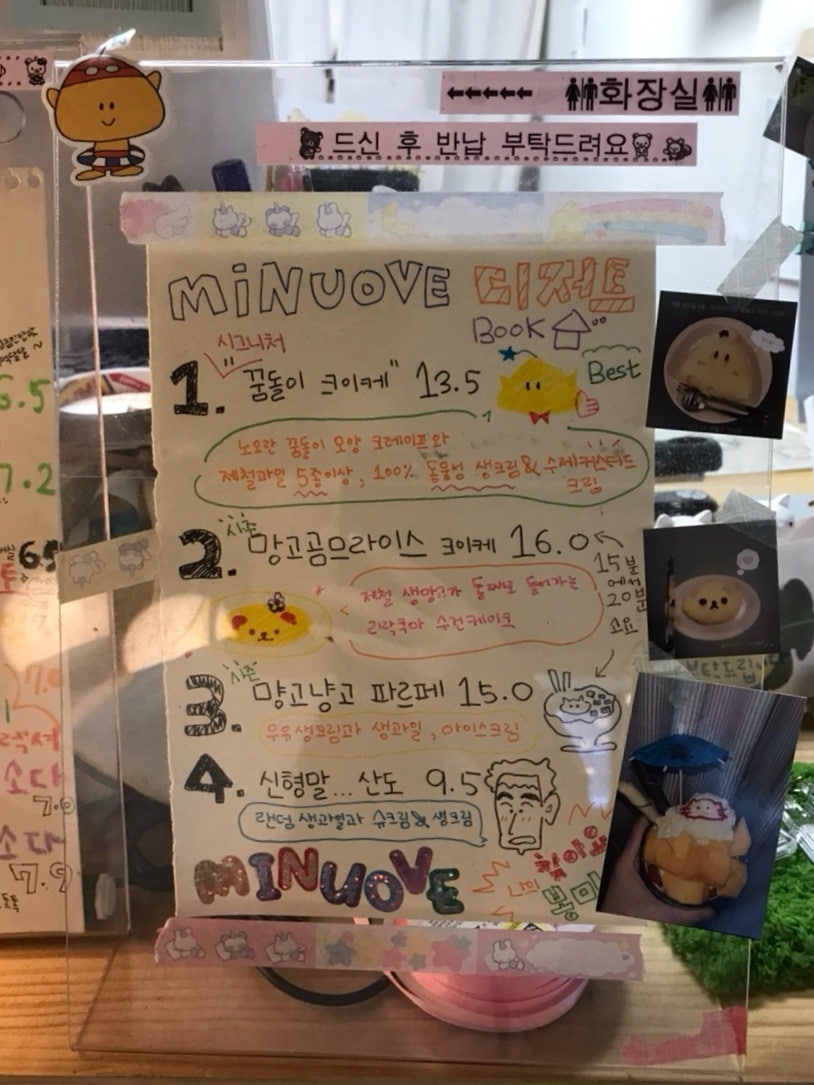 ←←←←← 화장실
드신 후 반납 부탁드려요
MiNUOVE 디저트
BOOK
시그니처
1. "꿈돌이 크이케" 13.5
Best
노오란 꿈돌이 모양 크레이프와
제철과일 5종이상, 100% 동물성 생크림 & 수제커스터드
크림
시즌
2. 망고곰므라이스 크이케 16.0
15분
에서
20분
소요
제철 생망고가 통째로 들어가는
리락쿠마 수건케이크
시즌
3. 먕고냥고 파르페 15.0
우유생크림과 생과일, 아이스크림
4. 신형말... 산도 9.5
랜덤 생과일과 슈크림 & 생크림
MINUOVE
찾아요
나의
6.5
7.2
6.5
7.0
소다
7.0
소다
7.9